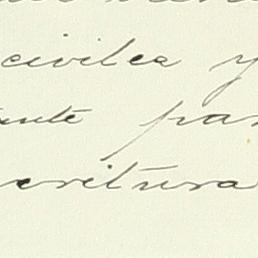 civiles y
ante par
critura